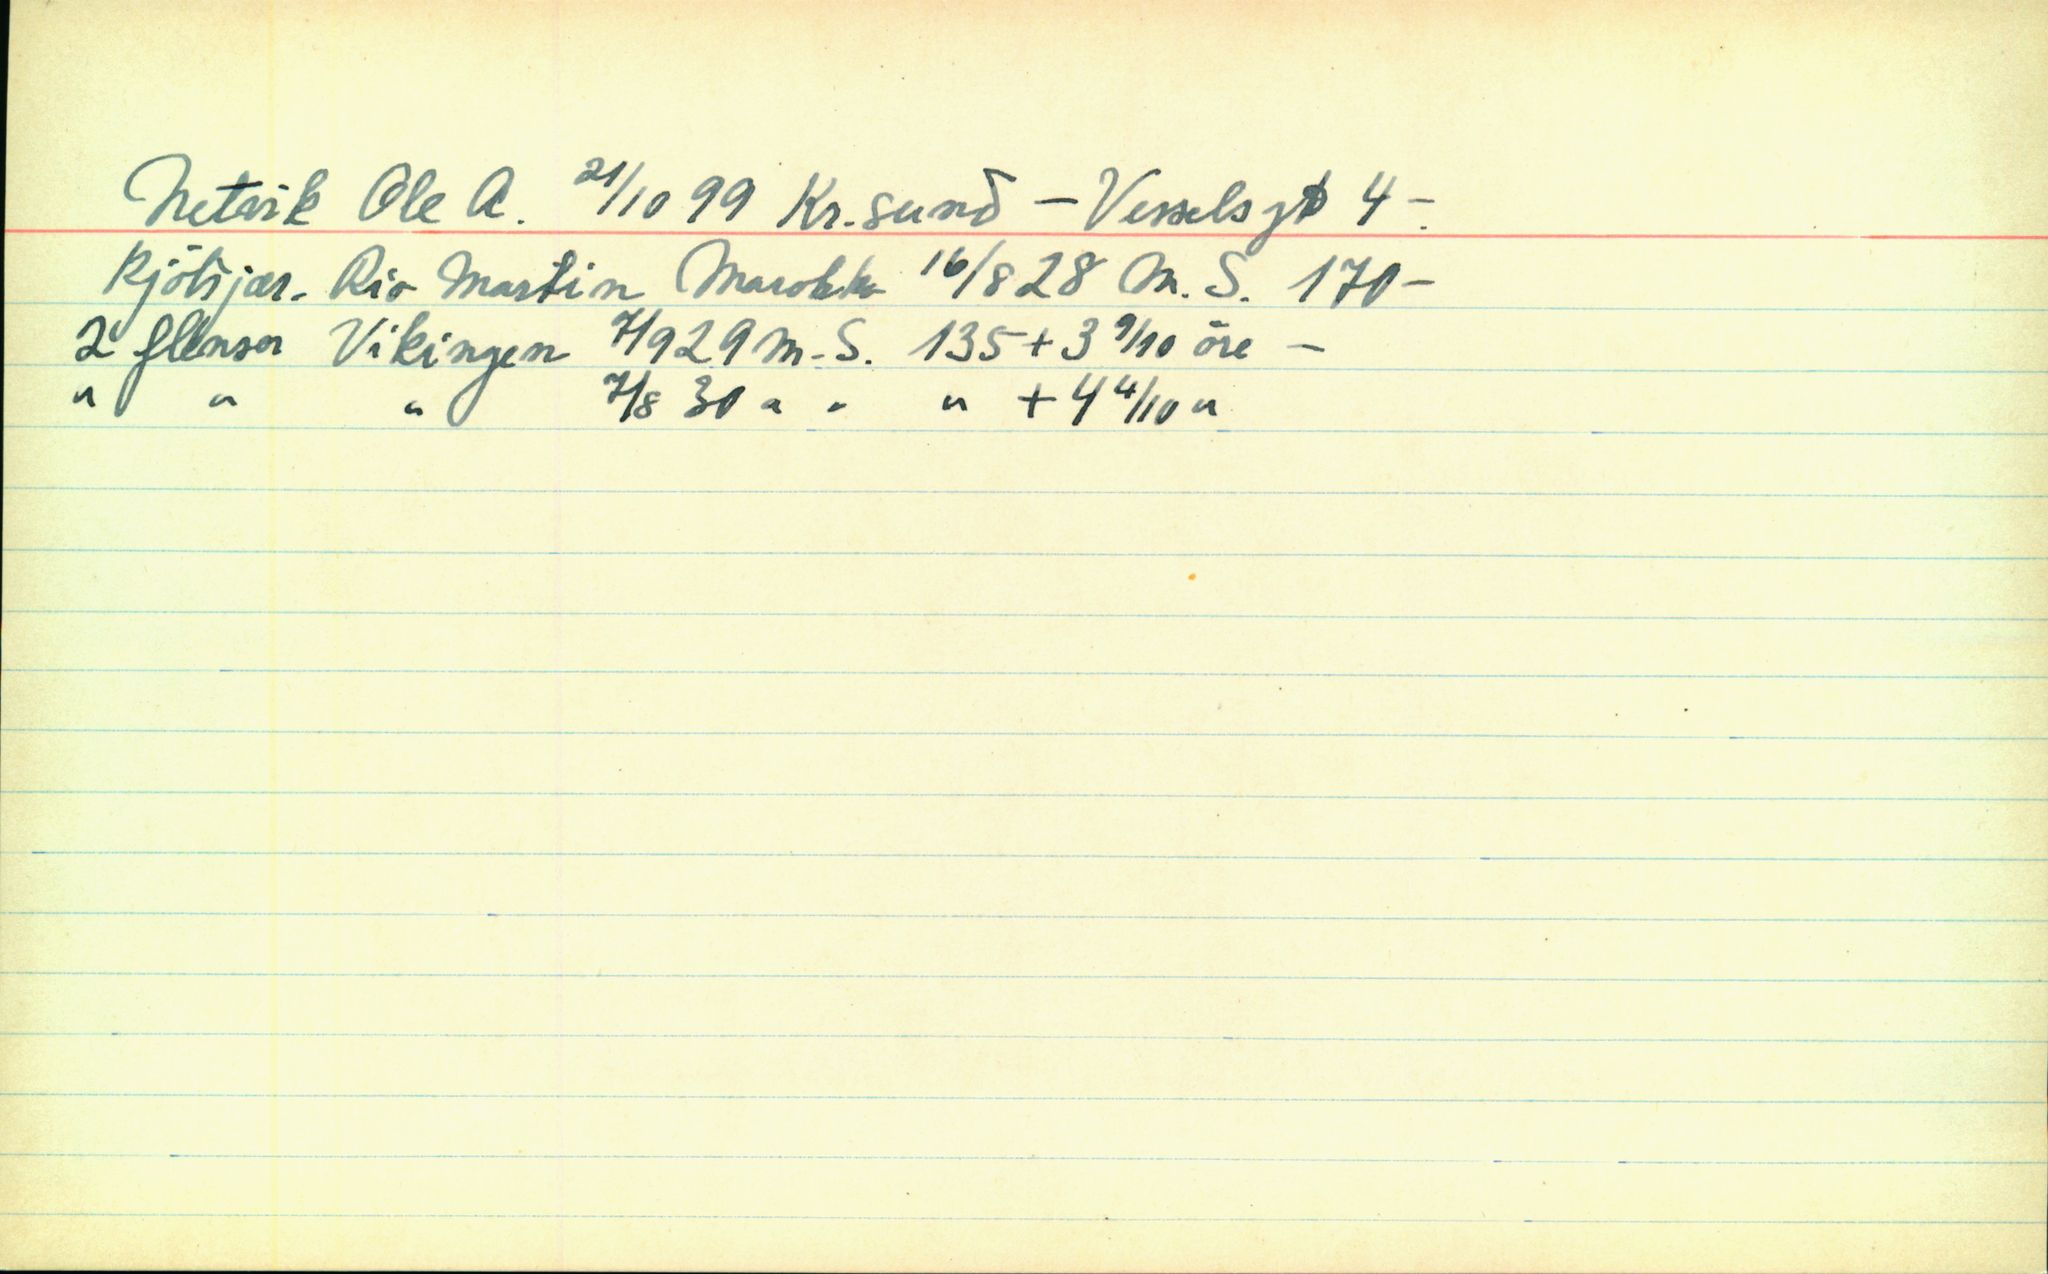 Netvik Ole A. 21/10 99 Kr.sund - Vesselsgt 4 -
Kjötsjær. Rio Martin Marokko 16/8 28 M.S. 170 -
2 flenser Vikingen 7/9 29 M.S. 135 + 3 9/10 öre -
" " " 7/8 30 " " " + 4 4/10 "